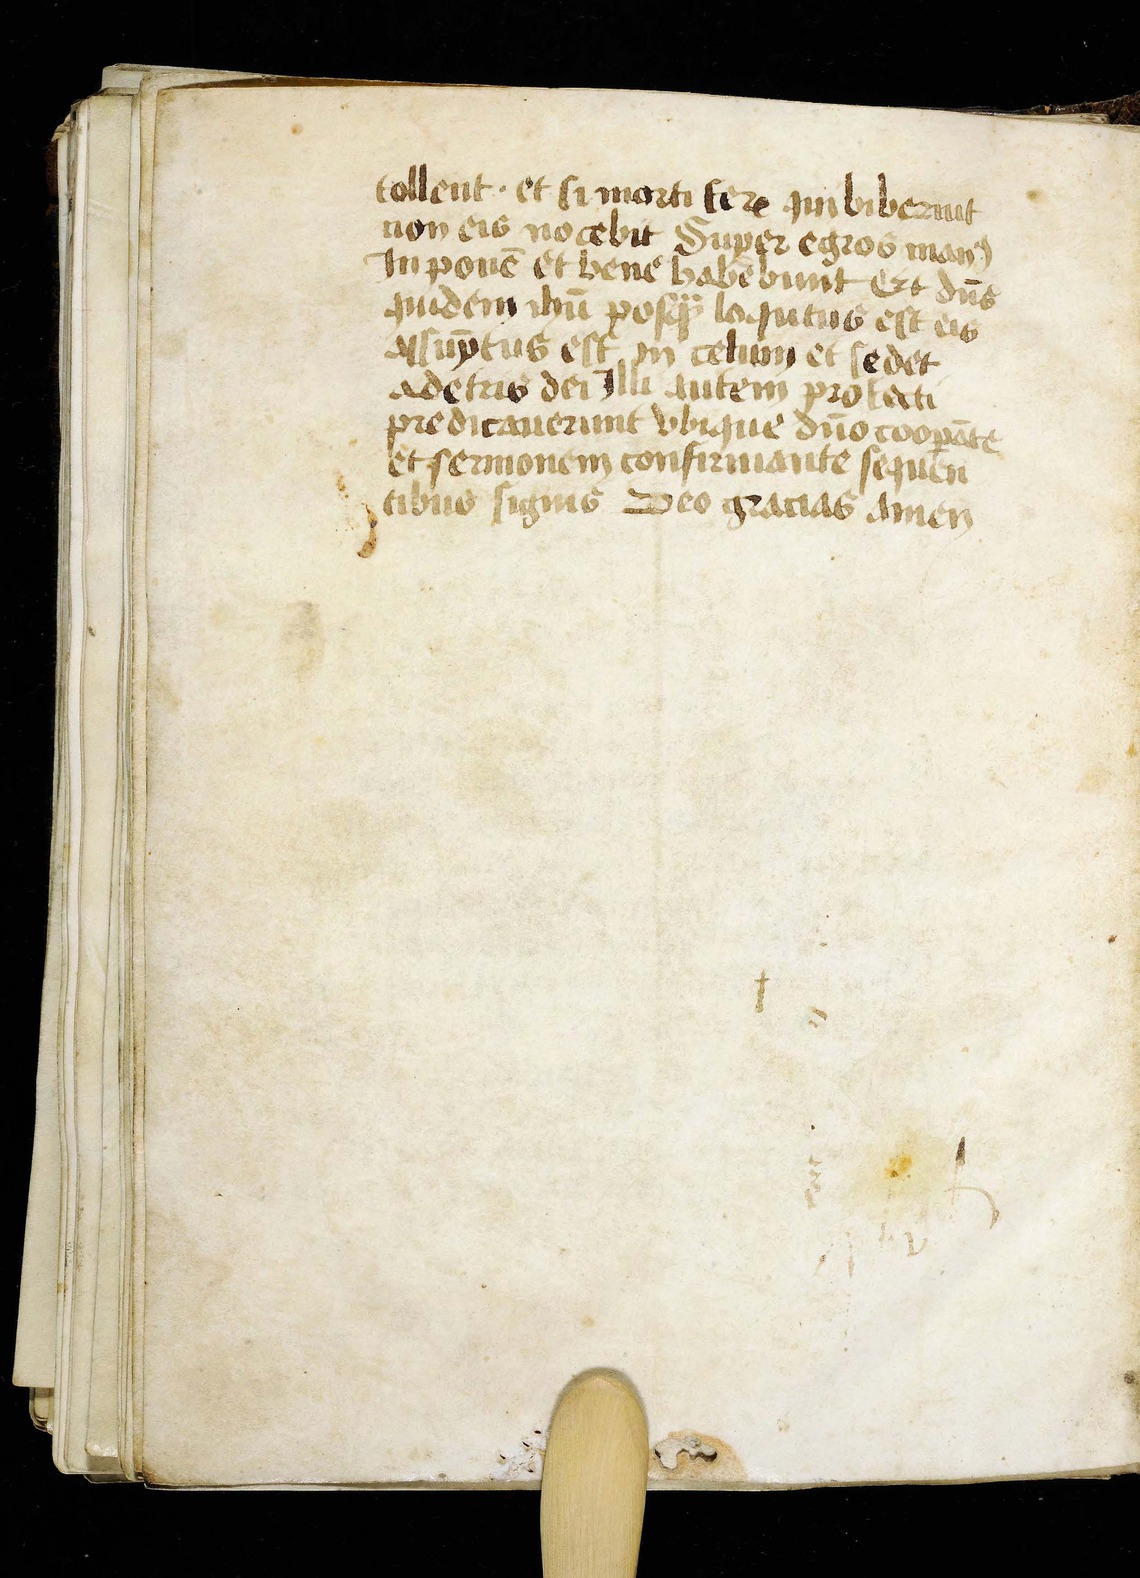 tollent · et si morti fere quibiberint
non eis nocebit Super egros man⁹
Inponēt et bene habēbunt Et dn̄s
quidem ihū posq̄ loqutus est eis
assūptus est in celum et sedet
adetris dei Illi autem profecti
predicauerunt vbique dn̄o coopāte
et sermonem confirmante sequen
tibus signis Deo gracias amen